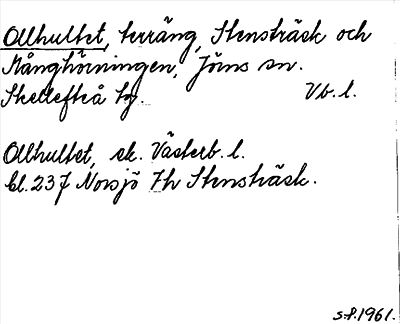 Allhultet, terräng, Stensträsk och
Månghörningen, Jörns sn.
Skellefteå tg. Vb. l.
Allhultet, ek. Västerb. l.
bl. 237 Norsjö 7h Stensträsk.
S.P. 1961.